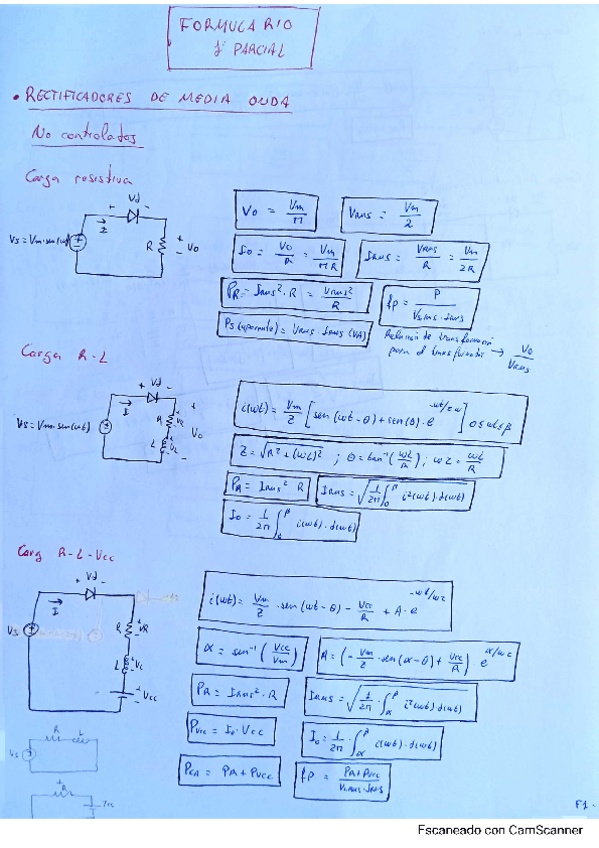 FORMULARIO
1º PARCIAL
• RECTIFICADORES DE MEDIA ONDA
No controlados
Carga resistiva
+ Vd -
I
Vs = Vm·sen(wt)
R
+ Vo -
Vo = Vm/π
VRMS = Vm/2
Io = Vo/R = Vm/πR
IRMS = VRMS/R = Vm/2R
PR = IRMS²·R = VRMS²/R
fp = P/Vs,RMS·IRMS
Ps (aparente) = VRMS·IRMS (VA)
Relación de transformación para el transformador → Vo/VRMS
Carga R-L
+ Vd -
I
Vs = Vm·sen(wt)
R + VR -
L + VL -
+ Vo -
i(wt) = Vm/Z [sen(wt-θ) + sen(θ)·e^-wt/wτ] 0≤wt≤β
Z = √R²+(wL)² ; θ = tan⁻¹(wL/R) ; wτ = wL/R
PR = IRMS² R
IRMS = √1/2π ∫₀^β i²(wt)·d(wt)
Io = 1/2π ∫₀^β i(wt)·d(wt)
Carg R-L-Vcc
+ Vd -
I
Vs
R + VR -
L + VL -
Vcc
i(wt) = Vm/Z · sen(wt-θ) - Vcc/R + A·e^-wt/wτ
α = sen⁻¹(Vcc/Vm)
A = (-Vm/Z · sen(α-θ) + Vcc/R) e^α/wτ
PR = IRMS²·R
IRMS = √1/2π · ∫α^β i²(wt) d(wt)
PVcc = Io·Vcc
Io = 1/2π · ∫α^β i(wt)·d(wt)
PCA = PR + PVcc
fp = PR+PVcc/Vs,RMS·IRMS
R L
Vs
R
Vcc
F1-
Escaneado con CamScanner